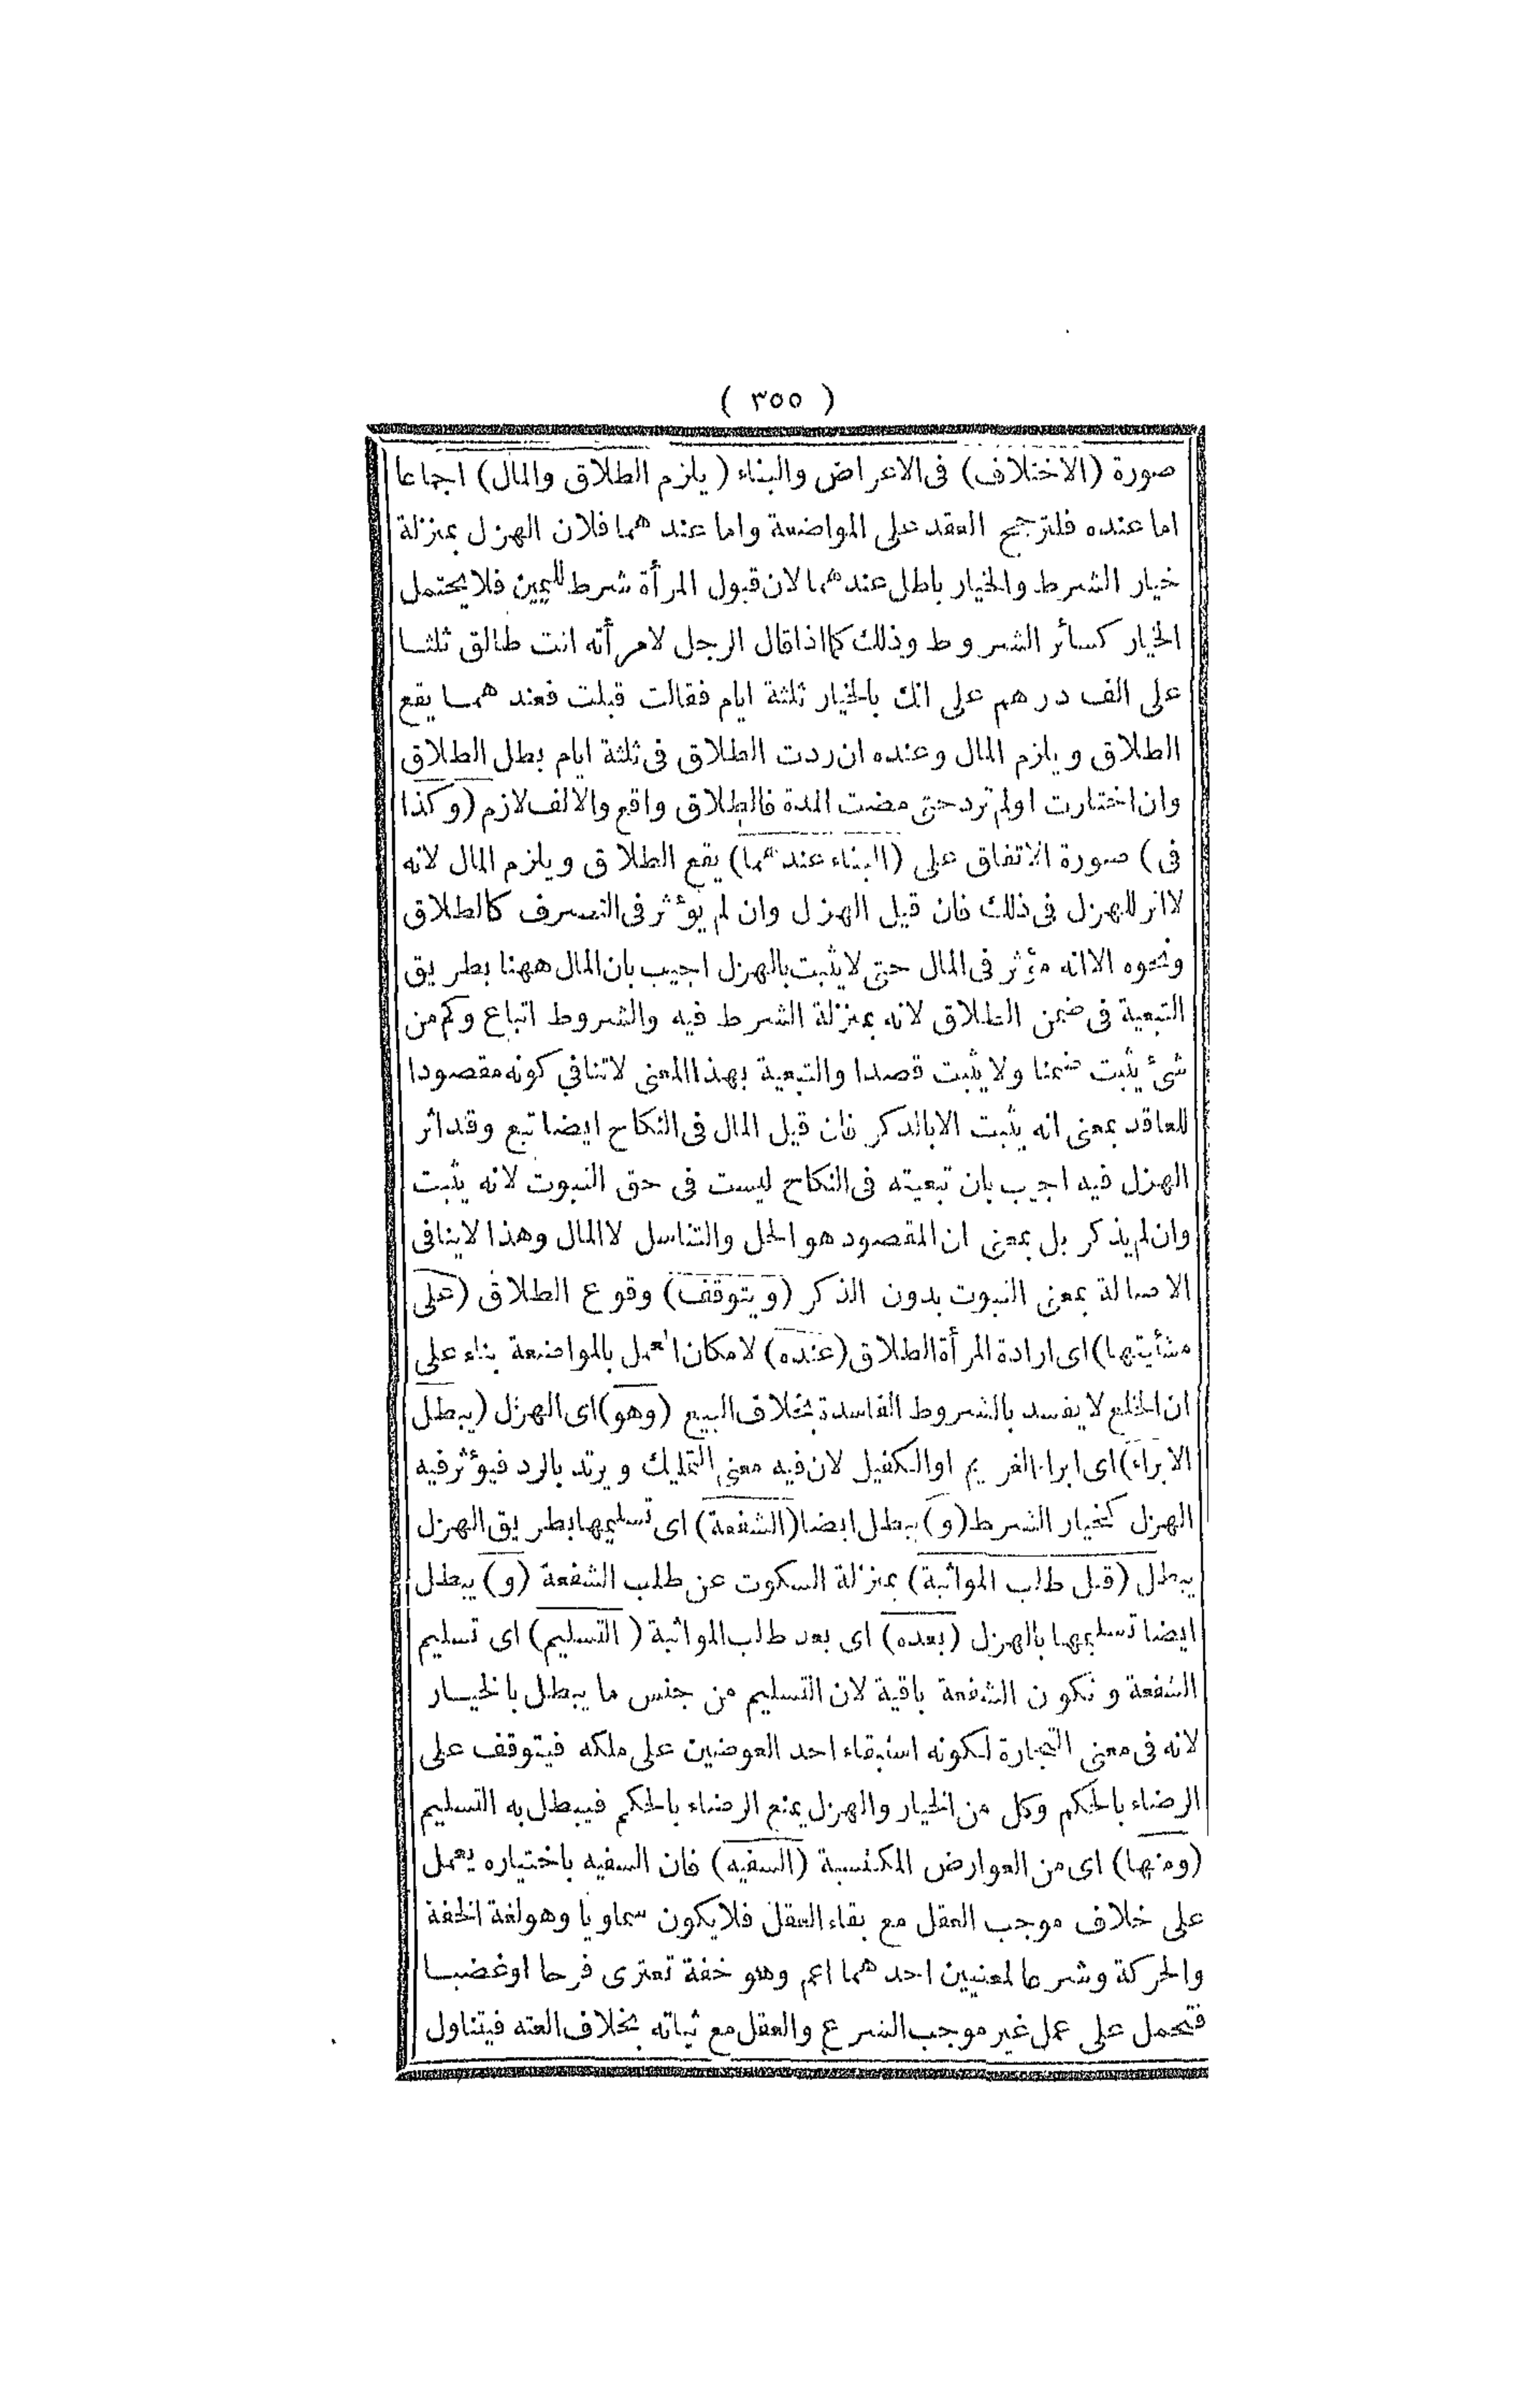 ( ٣٥٥ )
صورة (الاختلاف) فى الاعراض والبناء (يلزم الطلاق والمال) اجماعا
اما عنده فلترجح العقد على المواضعة واما عندهما فلان الهزل بمنزلة
خيار الشرط والخيار باطل عندهما لان قبول المرأة شرط لليمين فلا يحتمل
الخيار كسائر الشروط وذلك كما اذا قال الرجل لامرأته انت طالق ثلثا
على الف درهم على انك بالخيار ثلثة ايام فقالت قبلت فعندهما يقع
الطلاق ويلزم المال وعنده ان ردت الطلاق فى ثلثة ايام بطل الطلاق
وان اختارت اولم ترد حتى مضت المدة فالطلاق واقع والالف لازم (وكذا
فى) صورة الاتفاق على (البناء عندهما) يقع الطلاق ويلزم المال لانه
لا اثر للهزل فى ذلك فان قيل الهزل وان لم يؤثر فى التصرف كالطلاق
ونحوه الا انه مؤثر فى المال حتى لا يثبت بالهزل اجيب بان المال ههنا بطريق
التبعية فى ضمن الطلاق لانه بمنزلة الشرط فيه والشروط اتباع وكم من
شئ يثبت ضمنا ولا يثبت قصدا والتبعية بهذا المعنى لاتنافي كونه مقصودا
للعاقد بمعنى انه يثبت الا بالذكر فان قيل المال فى النكاح ايضا تبع وقد اثر
الهزل فيه اجيب بان تبعيته فى النكاح ليست فى حق الثبوت لانه يثبت
وان لم يذكر بل بمعنى ان المقصود هو الحل والتناسل لا المال وهذا لاينافى
الاصالة بمعنى الثبوت بدون الذكر (ويتوقف) وقوع الطلاق (على
مشأيتها) اى ارادة المرأة الطلاق (عنده) لامكان العمل بالمواضعة بناء على
ان الخلع لا يفسد بالشروط الفاسدة بخلاف البيع (وهو) اى الهزل (يبطل
الابراء) اى ابراء الغريم او الكفيل لان فيه معنى التمليك ويرتد بالرد فيؤثر فيه
الهزل كخيار الشرط (و) يبطل ايضا (الشفعة) اى تسليمها بطريق الهزل
يبطل (قبل طلب المواثبة) بمنزلة السكوت عن طلب الشفعة (و) يبطل
ايضا تسليمها بالهزل (بعده) اى بعد طلب المواثبة (التسليم) اى تسليم
الشفعة وتكون الشفعة باقية لان التسليم من جنس ما يبطل بالخيار
لانه فى معنى التجارة لكونه استبقاء احد العوضين على ملكه فيتوقف على
الرضاء بالحكم وكل من الخيار والهزل يمنع الرضاء بالحكم فيبطل به التسليم
(ومنها) اى من العوارض المكتسبة (السفيه) فان السفيه باختياره يعمل
على خلاف موجب العقل مع بقاء العقل فلا يكون سماويا وهو لغة الخفة
والحركة وشرعا لمعنيين احدهما اعم وهو خفة تعترى فرحا او غضبا
فتحمل على عمل غير موجب الشرع والعقل مع ثباته بخلاف العته فيتناول